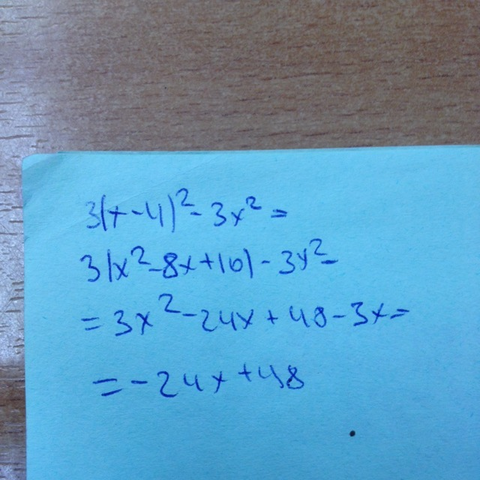 3(x-4)²-3x²=
3(x²-8x+16)-3x²=
=3x²-24x+48-3x=
=-24x+48